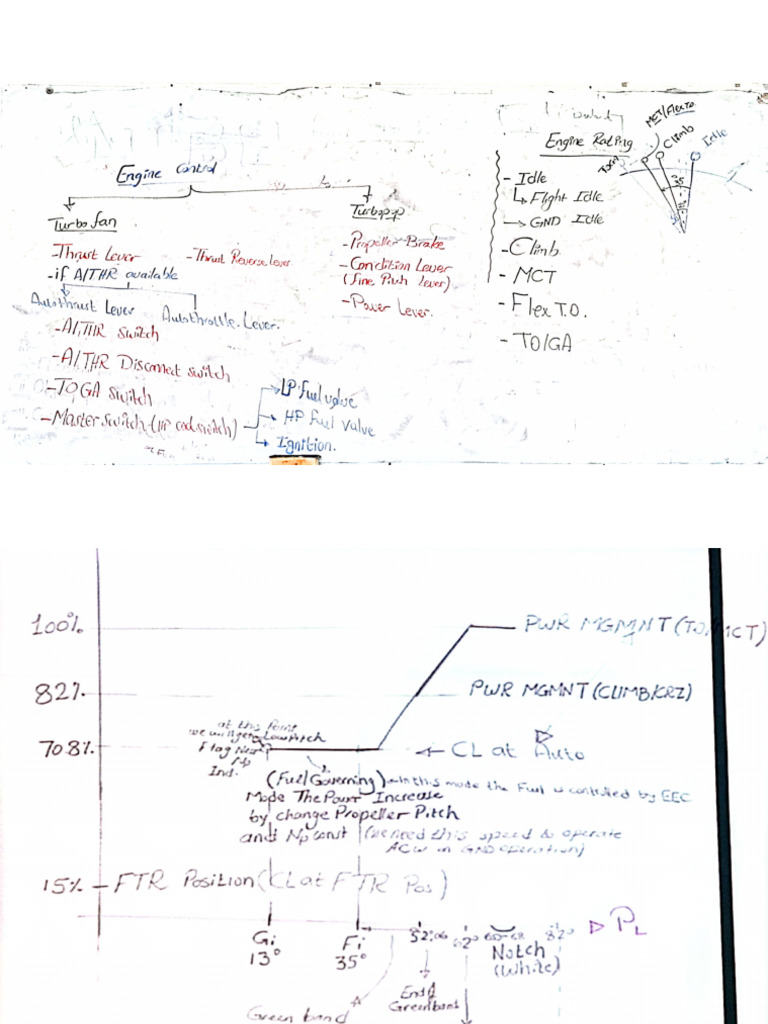 Engine Control
Turbofan
- Thrust Lever
- Thrust Reverse Lever
- if A/THR available
Autothrust Lever
Autothrottle Lever.
- A/THR Switch
- A/THR Disconnect switch
- TOGA Switch
- Master switch (HP switch)
LP fuel valve
HP fuel valve
Ignition.
- Propeller Brake
- Condition Lever
(fine Pitch lever)
- Power Lever.
Engine Rating
- Idle
Flight Idle
GND Idle
- Climb
- MCT
- Flex T.O.
- TO/GA
MCT/FlexTO
Climb
Idle
100%
PWR MGMNT (TO/MCT)
82%
PWR MGMNT (CLIMB/CRZ)
at this Point
we will get Low Pitch
Flag Next
Np
Ind.
70.8%
CL at Auto
(Fuel Governing) in this mode the Fuel is controlled by EEC
Mode The Power Increase
by change Propeller Pitch
and Np const (we need this speed to operate
ACW in GND operation)
15% FTR Position (CL at FTR Pos)
Gi
13°
Fi
35°
52.06
62°
60-68
Notch
(White)
82°
PL
End of
Greenband
Green band